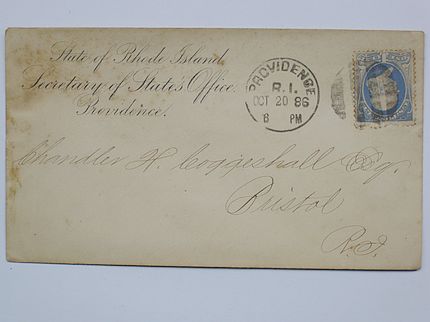 State of Rhode Island
Secretary of State's Office.
Providence.
PROVIDENCE
R.I.
OCT 20 86
8 PM
Chandler H. Coggeshall Esq.
Bristol
R.I.